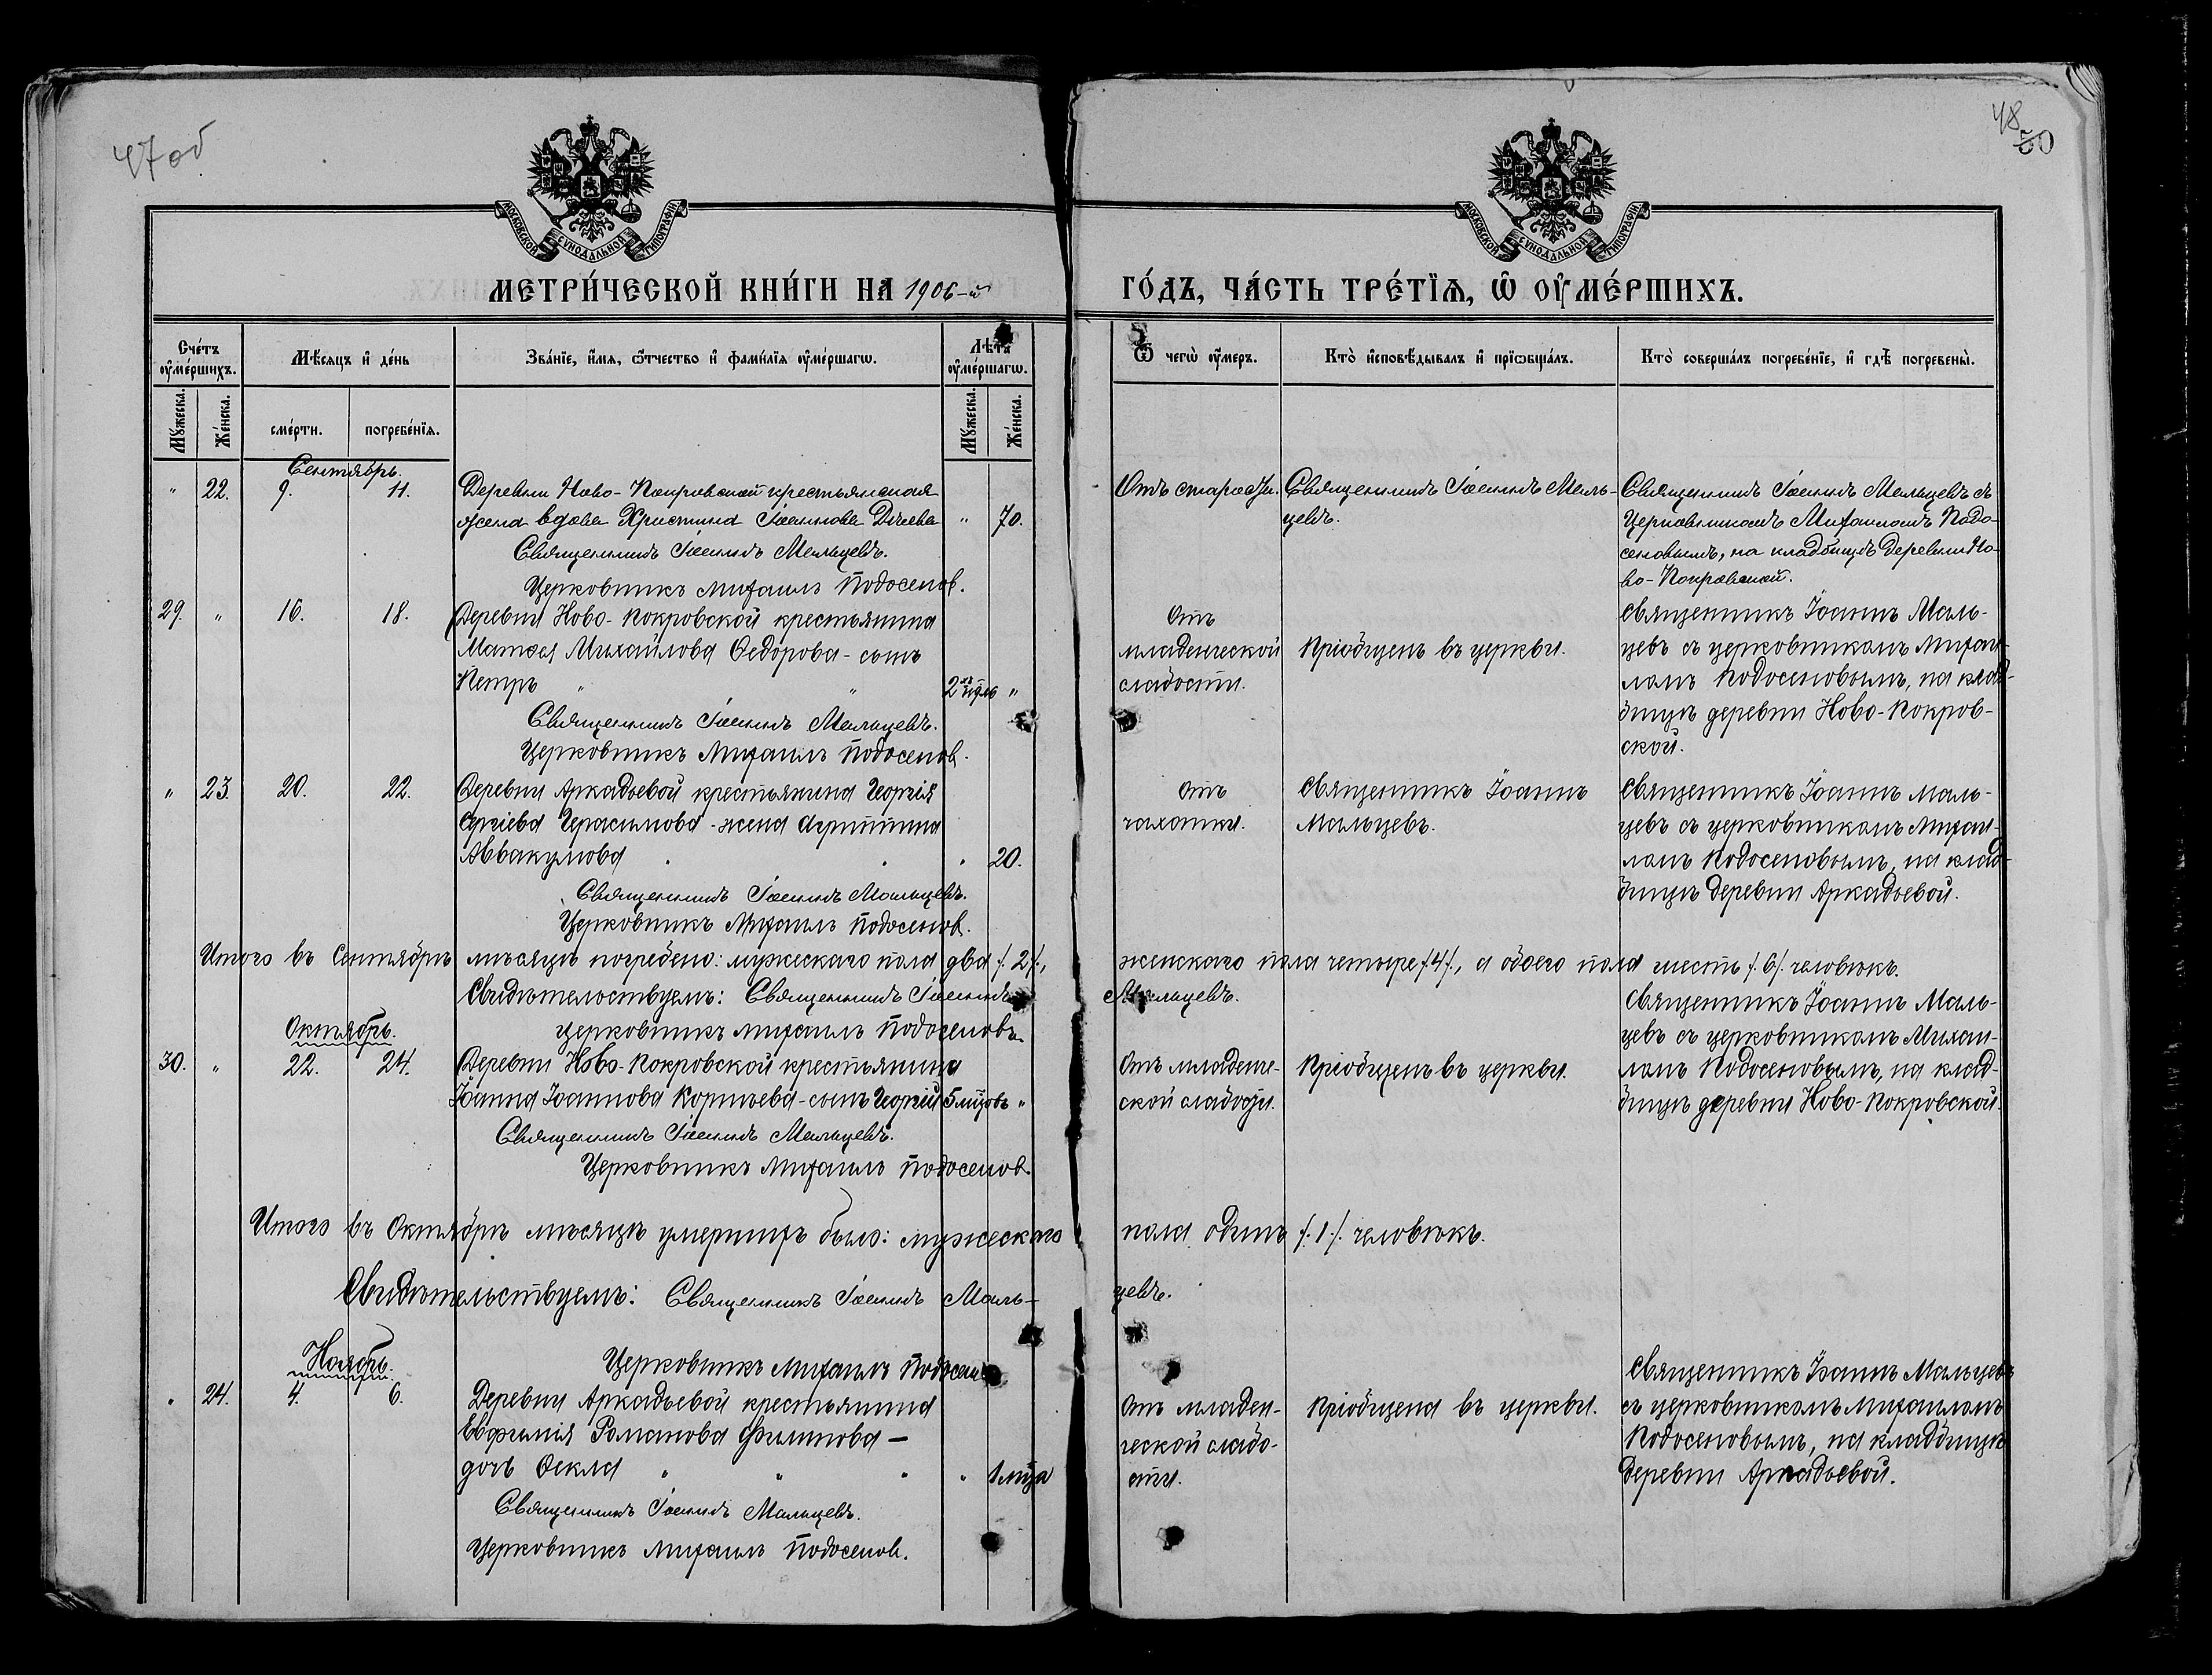 47 об
48
50
МОСКОВСКОЙ СѴНОДАЛЬНОЙ ТИПОГРАФІИ
МОСКОВСКОЙ СѴНОДАЛЬНОЙ ТИПОГРАФІИ
МЕТРИ́ЧЕСКОЙ КНИ́ГИ НА 1906-й
ГО́ДЪ, ЧА́СТЬ ТРЕ́ТІѦ, Ѡ ОУМЕ́РШИХЪ.
Сче́тъ оуме́ршихъ.
Мѣ́сяцъ и де́нь
Зва́нїе, и́мя, ѻ́тчество и фами́лїя оуме́ршагѡ.
Лѣ́та оуме́ршагѡ.
Ѿ чегѡ̀ оу́меръ.
Кто̀ исповѣ́дывалъ и прїѡбща́лъ.
Кто̀ соверша́лъ погребе́нїе, и гдѣ̀ погребены̀.
Му́жеска.
Же́нска.
сме́рти.
погребе́нїя.
Му́жеска.
Же́нска.
Сентябрь.
" 22. 9. 11.
Деревни Ново-Покровской крестьянская
жена вдова Христина Іоаннова " 70.
Священникъ Іоаннъ Мальцевъ.
Церковникъ Михаилъ Подосенов.
Отъ старости.
Священникъ Іоаннъ Маль-
цевъ.
Священникъ Іоаннъ Мальцевъ съ
Церковникомъ Михаиломъ Подо-
сеновымъ, на кладбищѣ деревни Но-
во-Покровской.
29. " 16. 18.
Деревни Ново-Покровской крестьянина
Матѳея Михайлова Ѳедорова - сынъ
Петръ " " 2 "
Священникъ Іоаннъ Мальцевъ.
Церковникъ Михаилъ Подосенов.
Отъ
младенческой
слабости.
Пріобщенъ въ церкви.
Священникъ Іоаннъ Маль-
цевъ съ церковникомъ Михаи-
ломъ Подосеновымъ, на клад-
бищѣ деревни Ново-Покров-
ской.
" 23. 20. 22.
Деревни Аркадьевой крестьянина Георгія
Сергіева Герасимова - жена Агриппина
Аввакумова " 20.
Священникъ Іоаннъ Мальцевъ.
Церковникъ Михаилъ Подосенов.
Отъ
чахотки.
Священникъ Іоаннъ
Мальцевъ.
Священникъ Іоаннъ Маль-
цевъ съ церковникомъ Михаи-
ломъ Подосеновымъ, на клад-
бищѣ деревни Аркадьевой.
Итого въ Сентябрѣ мѣсяцѣ погребено: мужескаго пола два /.2/., женскаго пола четыре /.4/., а обоего пола шесть /.6/. человѣкъ.
Свидѣтельствуемъ: Священникъ Іоаннъ Мальцевъ.
Церковникъ Михаилъ Подосеновъ.
Октябрь.
30. " 22. 24.
Деревни Ново-Покровской крестьянина
Іоанна Іоаннова Корнѣева - сынъ Георгій 5 мцовъ "
Священникъ Іоаннъ Мальцевъ.
Церковникъ Михаилъ Подосенов.
Отъ младенче-
ской слабости.
Пріобщенъ въ церкви.
Священникъ Іоаннъ Маль-
цевъ съ церковникомъ Михаи-
ломъ Подосеновымъ, на клад-
бищѣ деревни Ново-Покровской.
Итого въ Октябрѣ мѣсяцѣ умершихъ было: мужескаго пола одинъ /.1./ человѣкъ.
Свидѣтельствуемъ: Священникъ Іоаннъ Маль-
цевъ.
Церковникъ Михаилъ Подосенов
Ноябрь.
" 24. 4. 6.
Деревни Аркадьевой крестьянина
Евфимія Романова Филипова -
дочь Ѳекла " " " " 1 мца
Священникъ Іоаннъ Мальцевъ.
Церковникъ Михаилъ Подосенов.
Отъ младен-
ческой слабо-
сти.
Пріобщена въ церкви.
Священникъ Іоаннъ Мальцевъ
съ церковникомъ Михаиломъ
Подосеновымъ, на кладбищѣ
деревни Аркадьевой.